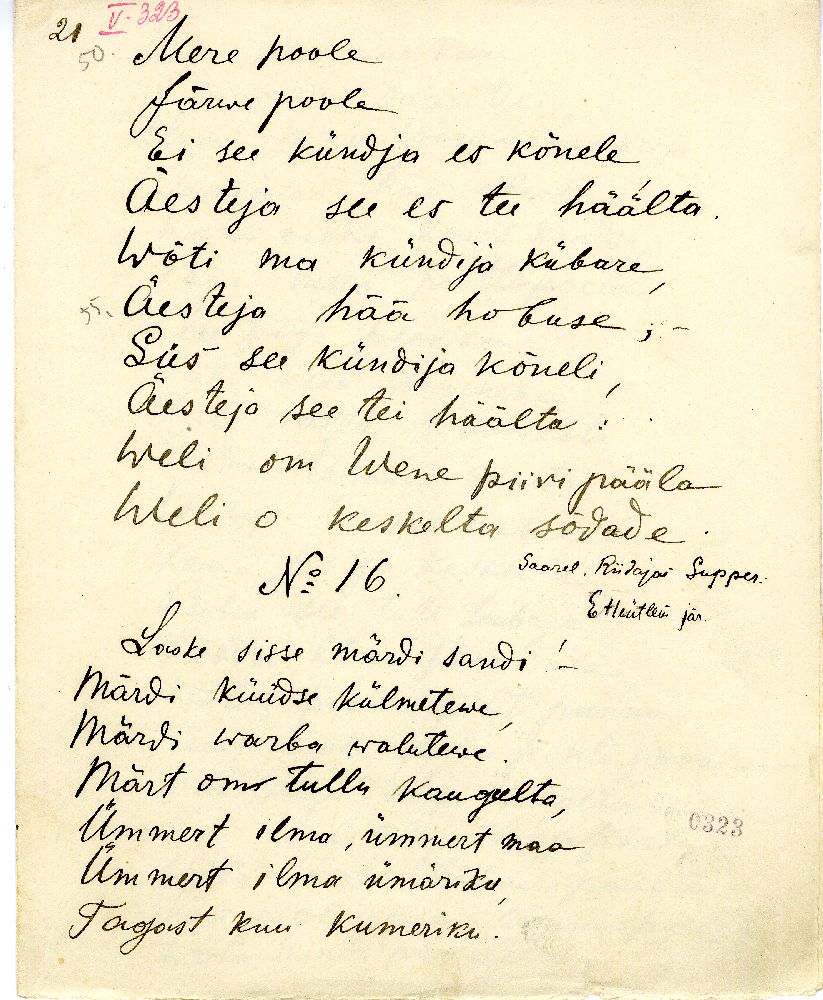 21 V. 323
50. Mere poole
Järwe poole
Ei see kündja es kõnele,
Äesteja see es tee häälta.
Wõti ma kündija kübare,
55. Äesteja hää hobuse ; –
Siis see kündija kõneli,
Äesteja see tei häälta :
Weli om Wene piiri pääla
Weli o keskelta sõdade.
No 16.
Saarel. Riidaja Supper.
E Hintlein jär.
Laske sisse märdi sandi ! –
Märdi küüdse külmetewe,
Märdi warba walutewe.
Märt om tullu kaugelta,
Ümmert ilma, ümmert maa
Ümmert ilma ümäriku,
Tagast kuu kumeriku.
0323